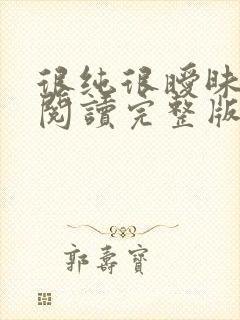 很纯很曖昧
閱讀完整版
郭壽寶